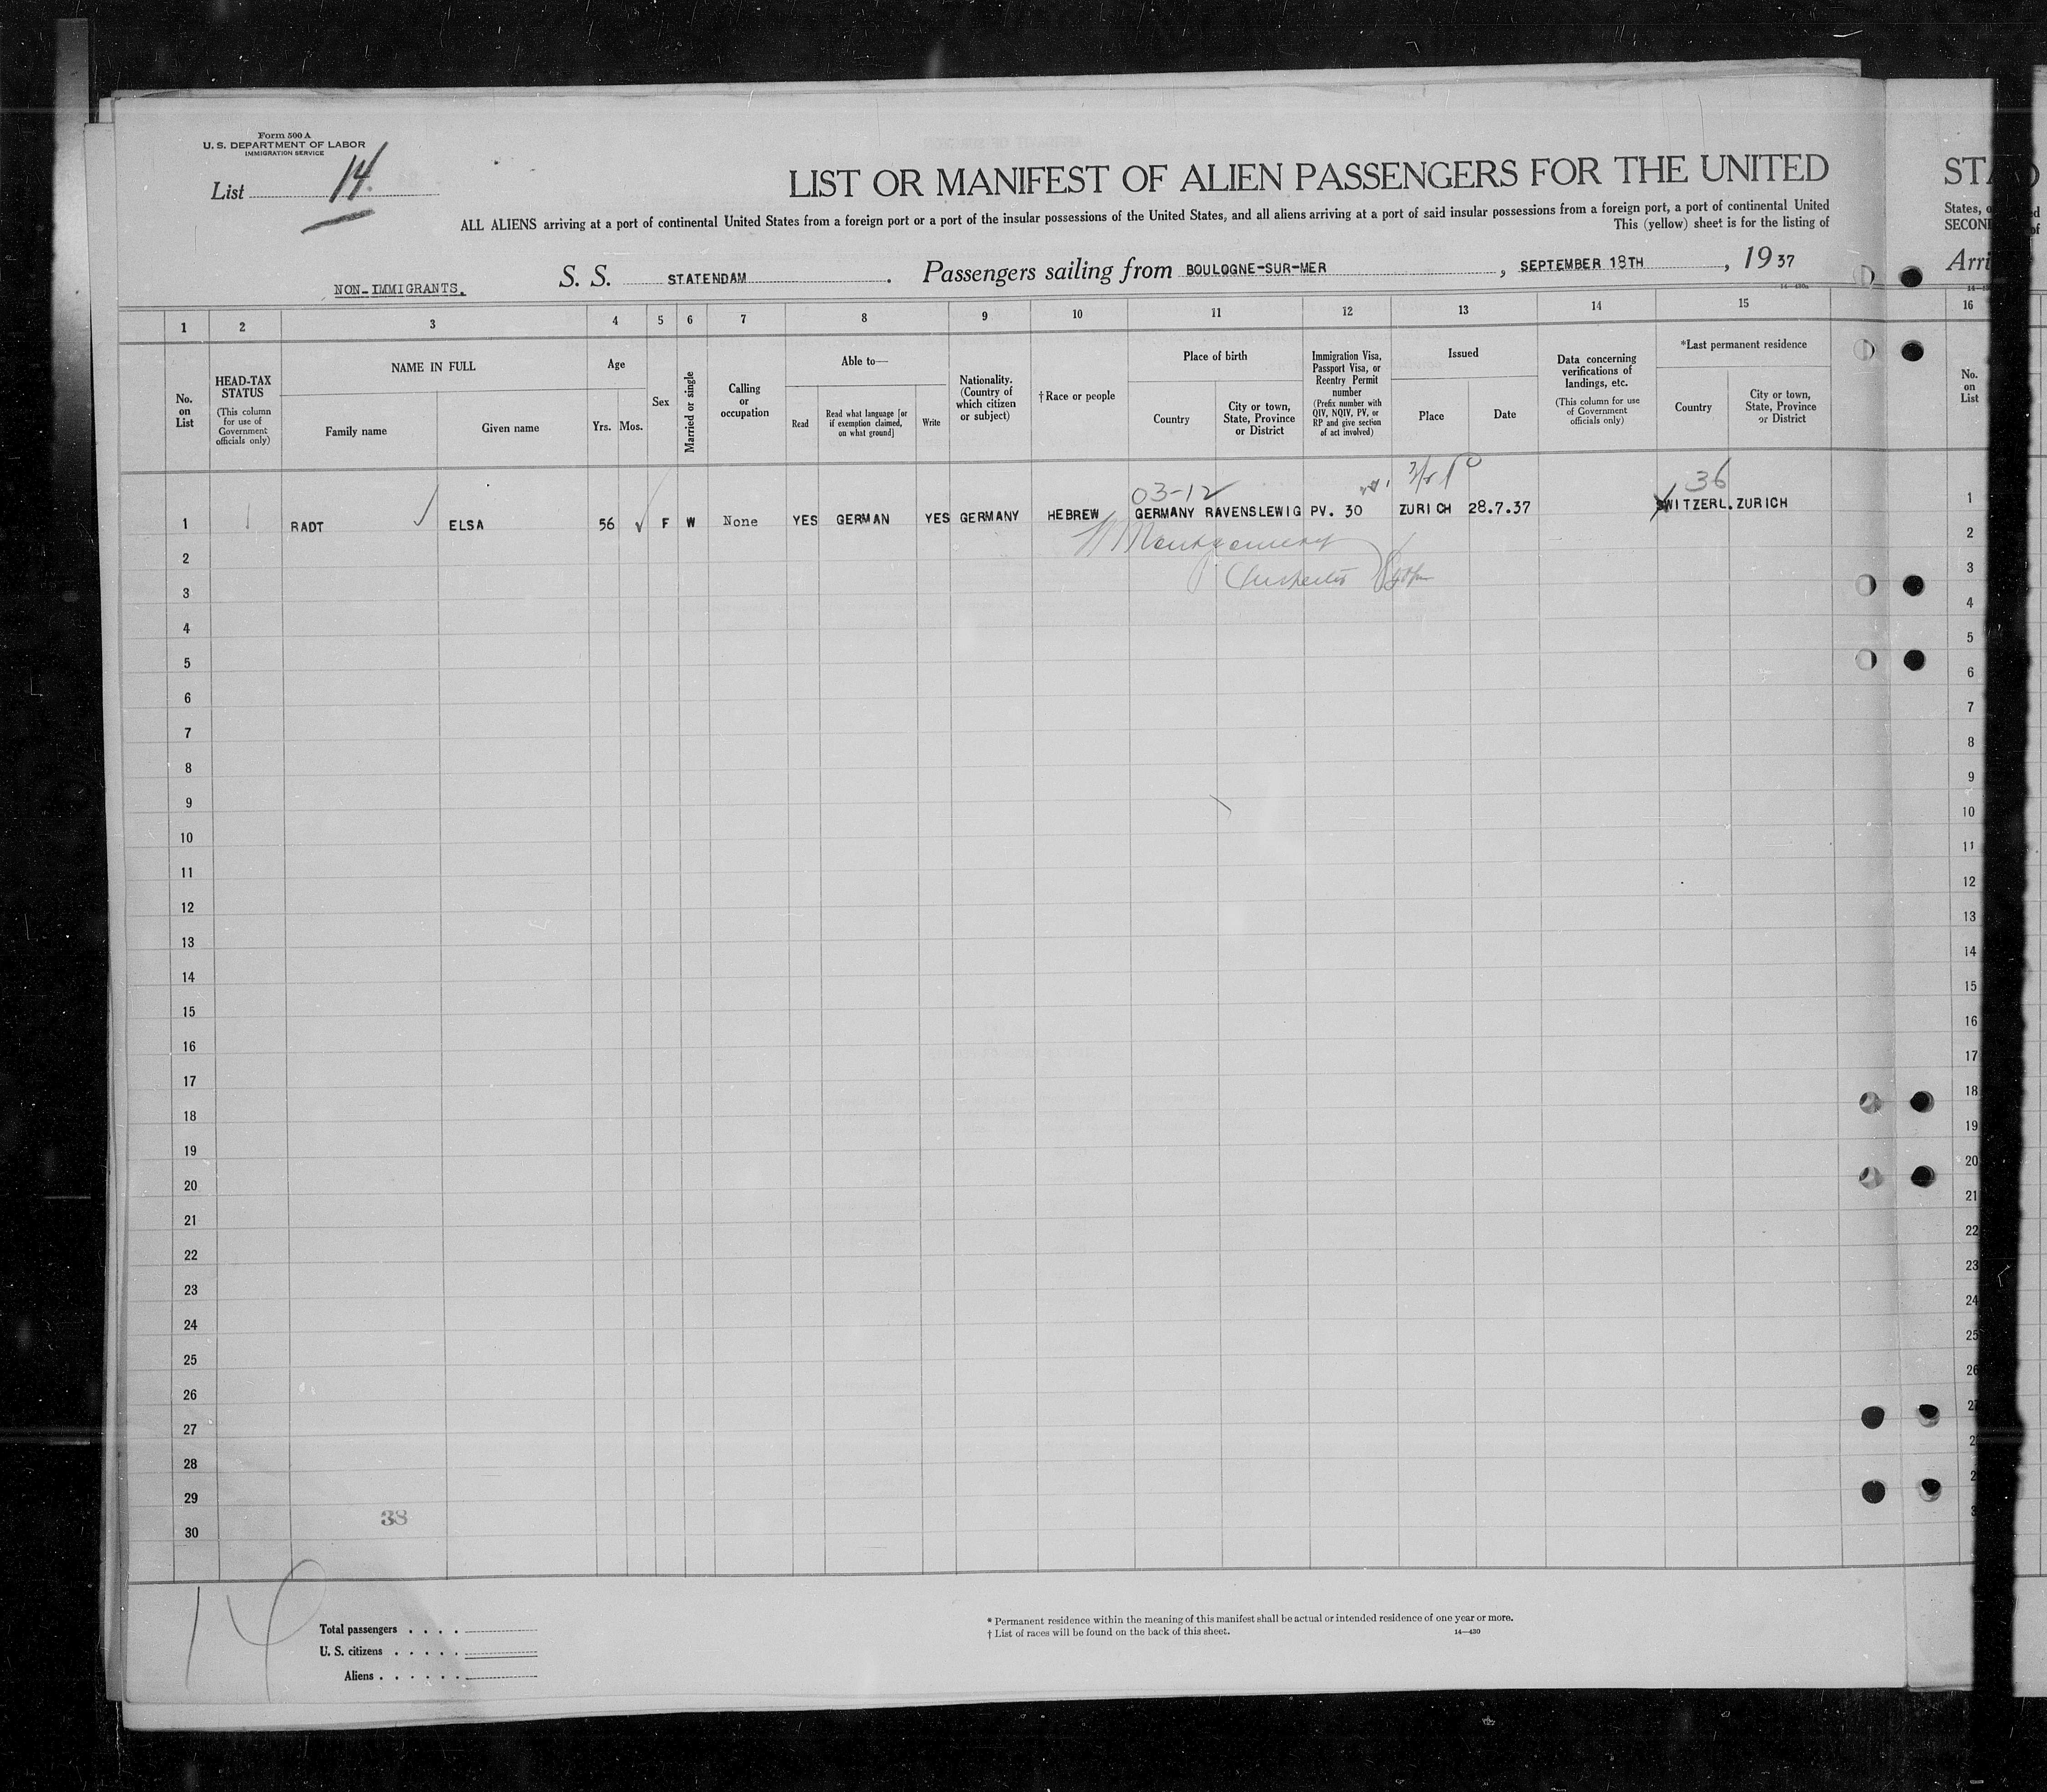 Form 500 A
U. S. DEPARTMENT OF LABOR
IMMIGRATION SERVICE
List 14.
LIST OR MANIFEST OF ALIEN PASSENGERS FOR THE UNITED
ALL ALIENS arriving at a port of continental United States from a foreign port or a port of the insular possessions of the United States, and all aliens arriving at a port of said insular possessions from a foreign port, a port of continental United
This (yellow) sheet is for the listing of
NON-IMMIGRANTS. S. S. STATENDAM. Passengers sailing from BOULOGNE-SUR-MER, SEPTEMBER 18TH, 1937
States, o
SECOND
Arri
1 2 3 4 5 6 7 8 9 10 11 12 13 14 15 16
No. on List
HEAD-TAX STATUS
(This column for use of Government officials only)
NAME IN FULL
Family name
Given name
Age
Yrs. Mos.
Sex
Married or single
Calling or occupation
Able to—
Read
Read what language [or if exemption claimed, on what ground]
Write
Nationality. (Country of which citizen or subject)
†Race or people
Place of birth
Country
City or town, State, Province or District
Immigration Visa, Passport Visa, or Reentry Permit number
(Prefix number with QIV, NQIV, PV, or RP and give section of act involved)
Issued
Place
Date
Data concerning verifications of landings, etc.
(This column for use of Government officials only)
*Last permanent residence
Country
City or town, State, Province or District
No. on List
03-12 36
1 RADT ELSA 56 F W None YES GERMAN YES GERMANY HEBREW GERMANY RAVENSLEWIG PV. 30 ZURICH 28.7.37 SWITZERL. ZURICH 1
Montgomery
2 2
Inspector
3 3
4 4
5 5
6 6
7 7
8 8
9 9
10 10
11 11
12 12
13 13
14 14
15 15
16 16
17 17
18 18
19 19
20 20
21 21
22 22
23 23
24 24
25 25
26 26
27
28
29
38
30
14
Total passengers . . . .
U. S. citizens . . . . .
Aliens . . . . . .
* Permanent residence within the meaning of this manifest shall be actual or intended residence of one year or more.
† List of races will be found on the back of this sheet. 14—430